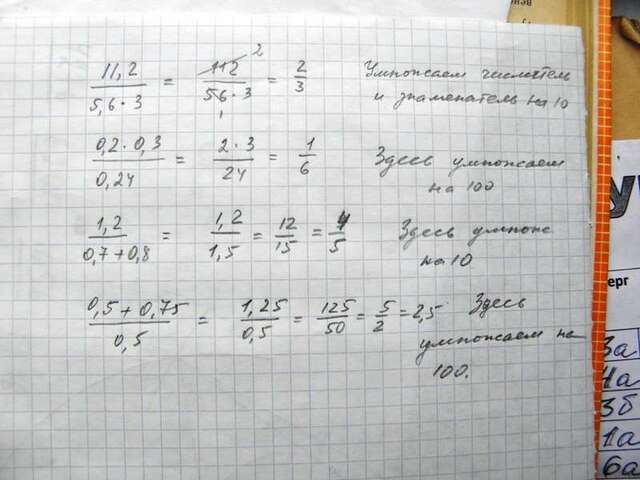 11,2/5,6·3 = 112/56·3 = 2/3 Умножаем числитель
2
1
и знаменатель на 10
0,2·0,3/0,24 = 2·3/24 = 1/6 Здесь умножаем
на 100
1,2/0,7+0,8 = 1,2/1,5 = 12/15 = 4/5 Здесь умнож
на 10
0,5+0,75/0,5 = 1,25/0,5 = 125/50 = 5/2 = 2,5 Здесь
умножаем на
100.
ерг
3а
4а
3б
1а
6а